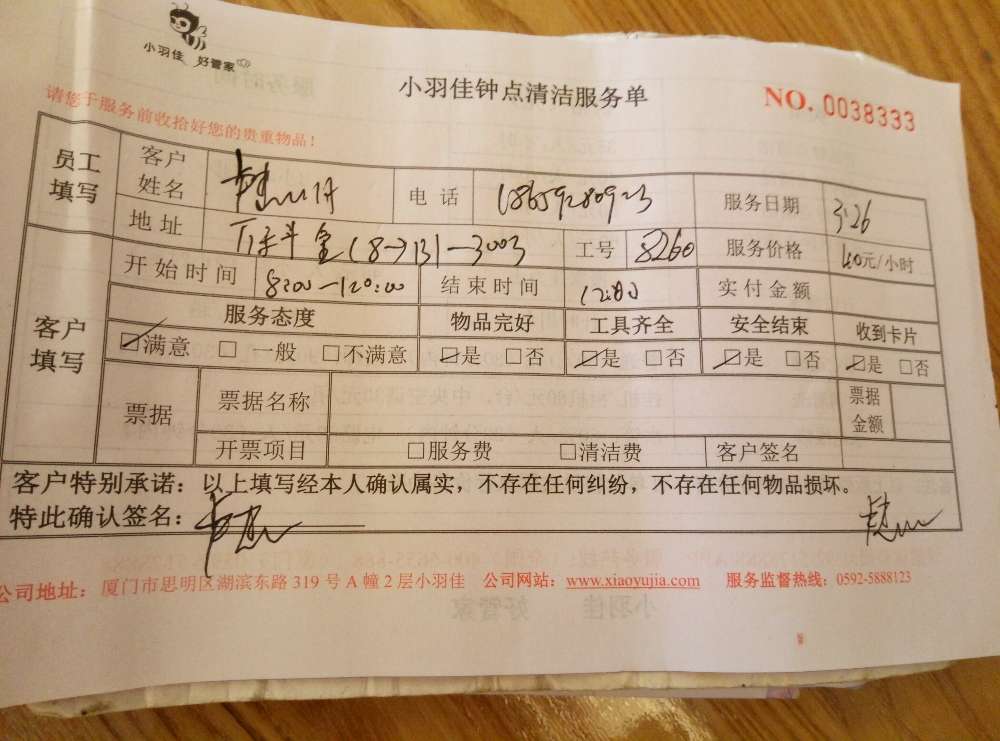 小羽佳 好管家
小羽佳钟点清洁服务单
NO. 0038333
请您于服务前收拾好您的贵重物品！
员工填写
客户姓名
电话 18659280923
服务日期 3.26
地址 (8-7)31-3003
工号 8260
服务价格 元/小时
开始时间 8:00-12:00
结束时间
实付金额
客户填写
服务态度 物品完好 工具齐全 安全结束 收到卡片
☑满意 □一般 □不满意 ☑是 □否 ☑是 □否 ☑是 □否 ☑是 □否
票据 票据名称 票据金额
开票项目 □服务费 □清洁费 客户签名
客户特别承诺：以上填写经本人确认属实，不存在任何纠纷，不存在任何物品损坏。
特此确认签名：
公司地址：厦门市思明区湖滨东路319号A幢2层小羽佳 公司网站：www.xiaoyujia.com 服务监督热线：0592-5888123